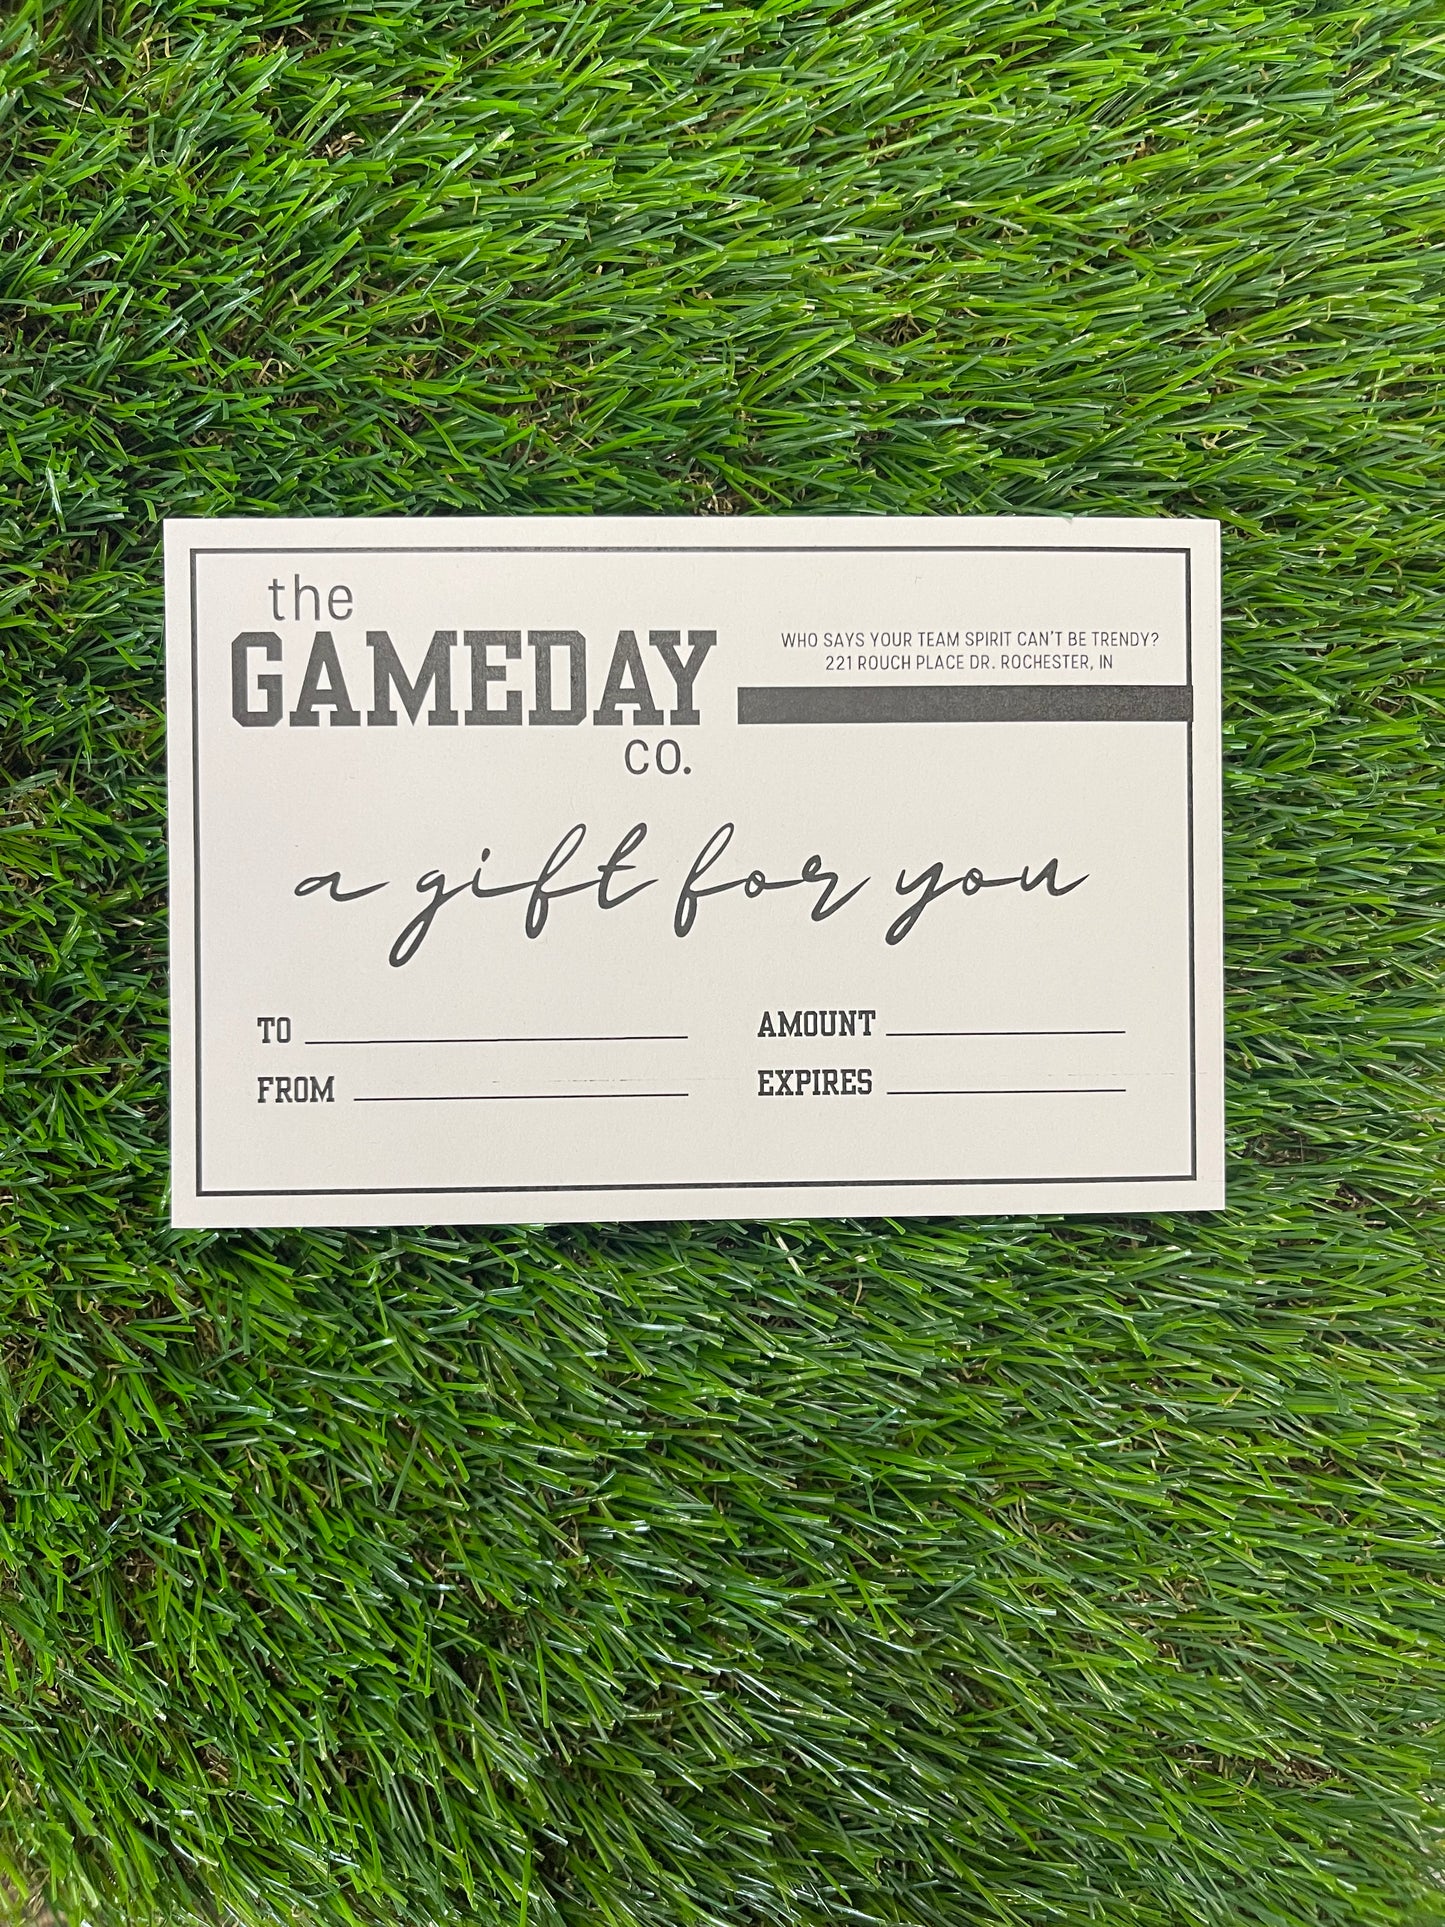 the
GAMEDAY
co.
WHO SAYS YOUR TEAM SPIRIT CAN'T BE TRENDY?
221 ROUCH PLACE DR. ROCHESTER, IN
a gift for you
TO
FROM
AMOUNT
EXPIRES